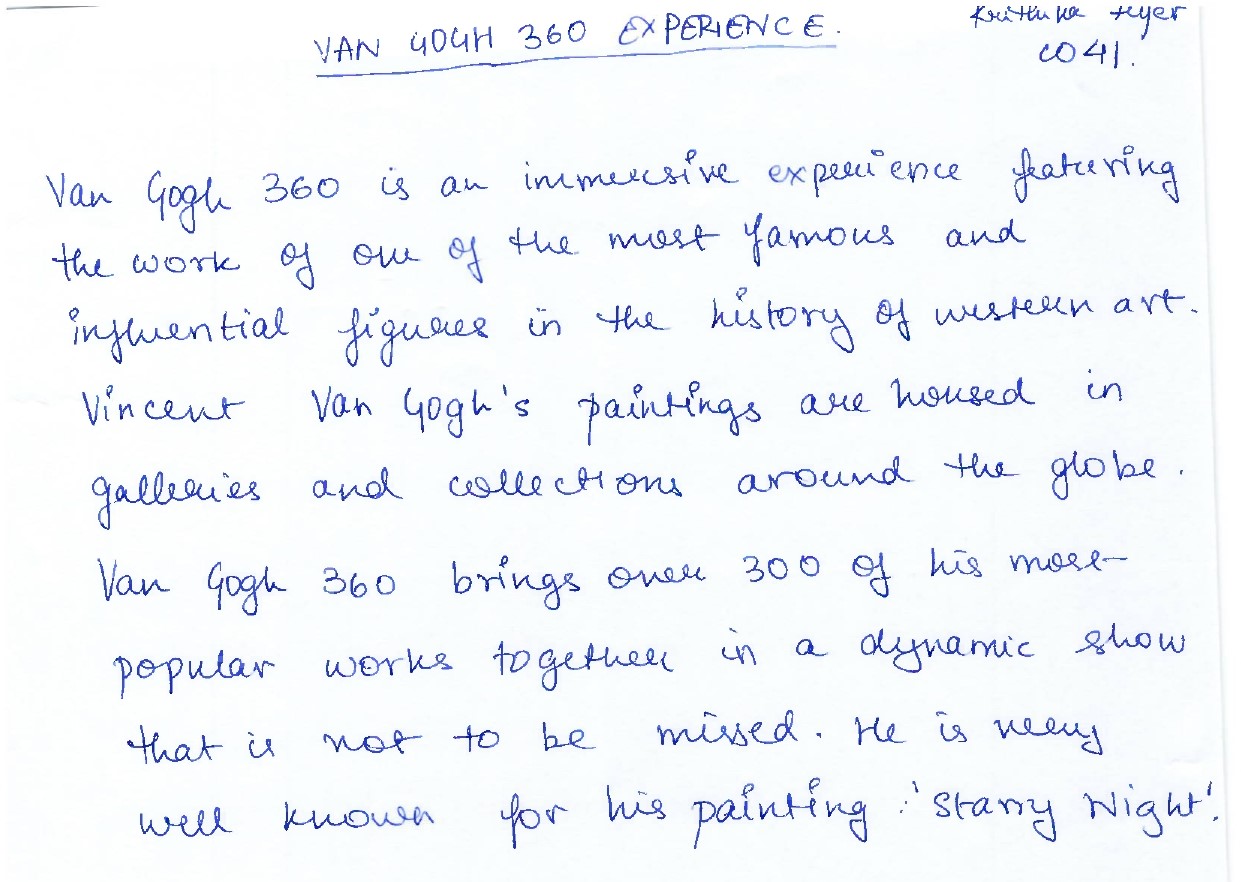 VAN GOGH 360 EXPERIENCE.
Krithika Iyer
CO41.
Van Gogh 360 is an immersive experience featuring
the work of one of the most famous and
influential figures in the history of western art.
Vincent Van Gogh's paintings are housed in
galleries and collections around the globe.
Van Gogh 360 brings over 300 of his most
popular works together in a dynamic show
that is not to be missed. He is very
well known for his painting : 'Starry Night'.